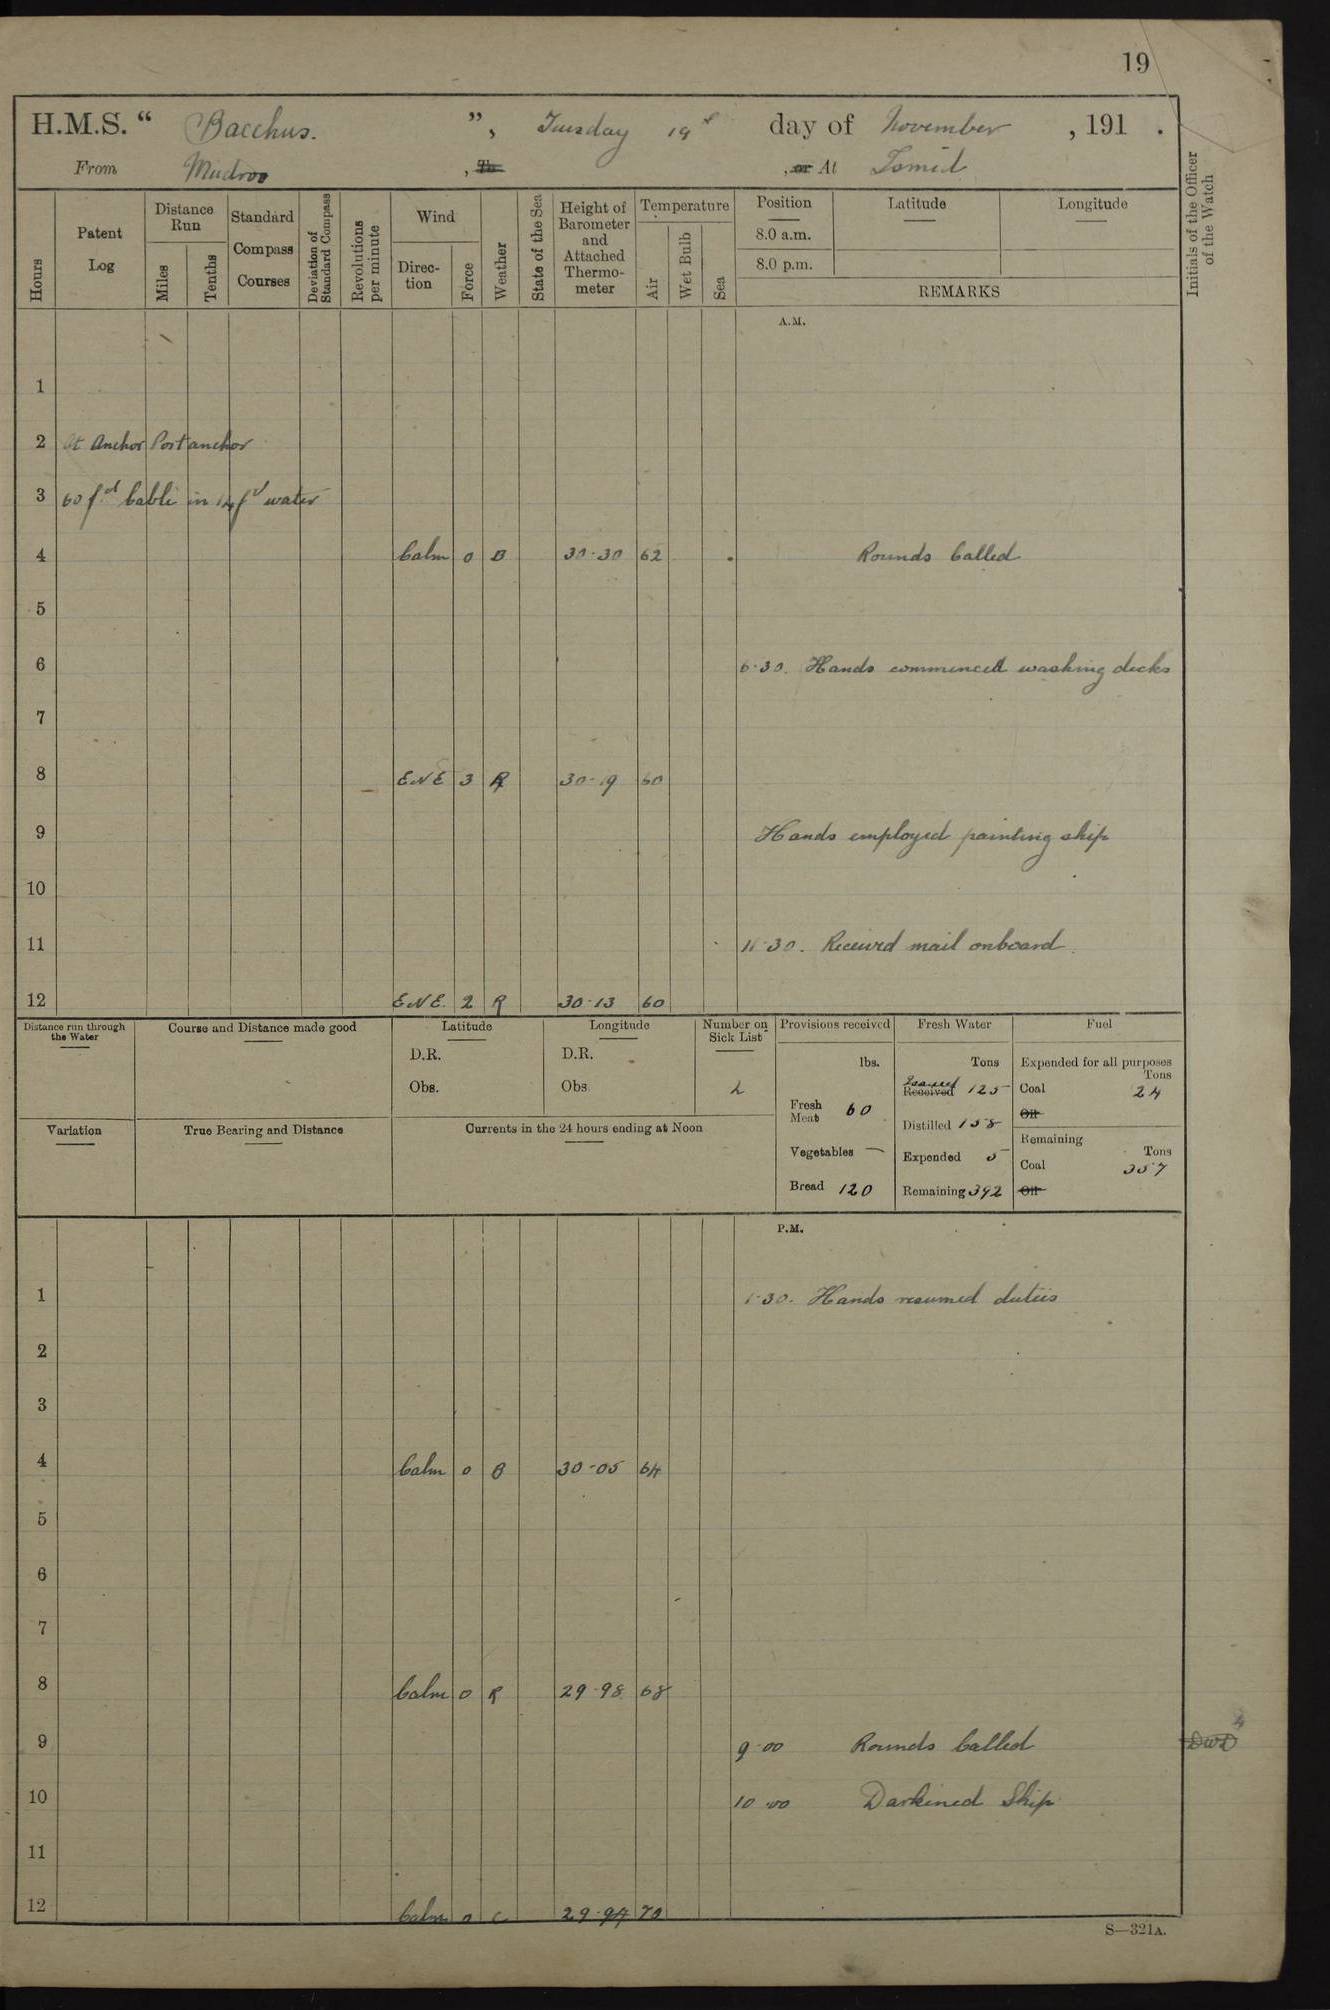 19
H.M.S. “ Bacchus. ”, Tuesday 19th day of November , 191 .
From Mudros , To , or At Ismid
Hours
Patent Log
Distance Run
Miles
Tenths
Standard Compass Courses
Deviation of Standard Compass
Revolutions per minute
Wind
Direction
Force
Weather
State of the Sea
Height of Barometer and Attached Thermometer
Temperature
Air
Wet Bulb
Sea
Position
8.0 a.m.
8.0 p.m.
Latitude
Longitude
REMARKS
Initials of the Officer of the Watch
A.M.
1
2 At Anchor Port anchor
3 60 fms Cable in 14 fms water
4 Calm 0 B 30·30 62 Rounds Called
5
6 6·30. Hands commenced washing decks
7
8 ENE 3 R 30·19 60
9 Hands employed painting ship
10
11 11·30. Received mail onboard
12 ENE. 2 R 30·13 60
Distance run through the Water
Course and Distance made good
Latitude
D.R.
Obs.
Longitude
D.R.
Obs.
Number on Sick List
2
Variation
True Bearing and Distance
Currents in the 24 hours ending at Noon
Provisions received
lbs.
Fresh Meat 60
Vegetables —
Bread 120
Fresh Water
Tons
Received 125
Distilled 158
Expended 5
Remaining 392
Fuel
Expended for all purposes
Tons
Coal 24
Oil
Remaining
Tons
Coal 357
Oil
P.M.
1 1·30. Hands resumed duties
2
3
4 Calm 0 B 30·05 64
5
6
7
8 Calm 0 R 29·98 68
9 9·00 Rounds Called DWD
10 10·00 Darkened Ship
11
12 Calm 0 C 29·94 70
S—321A.